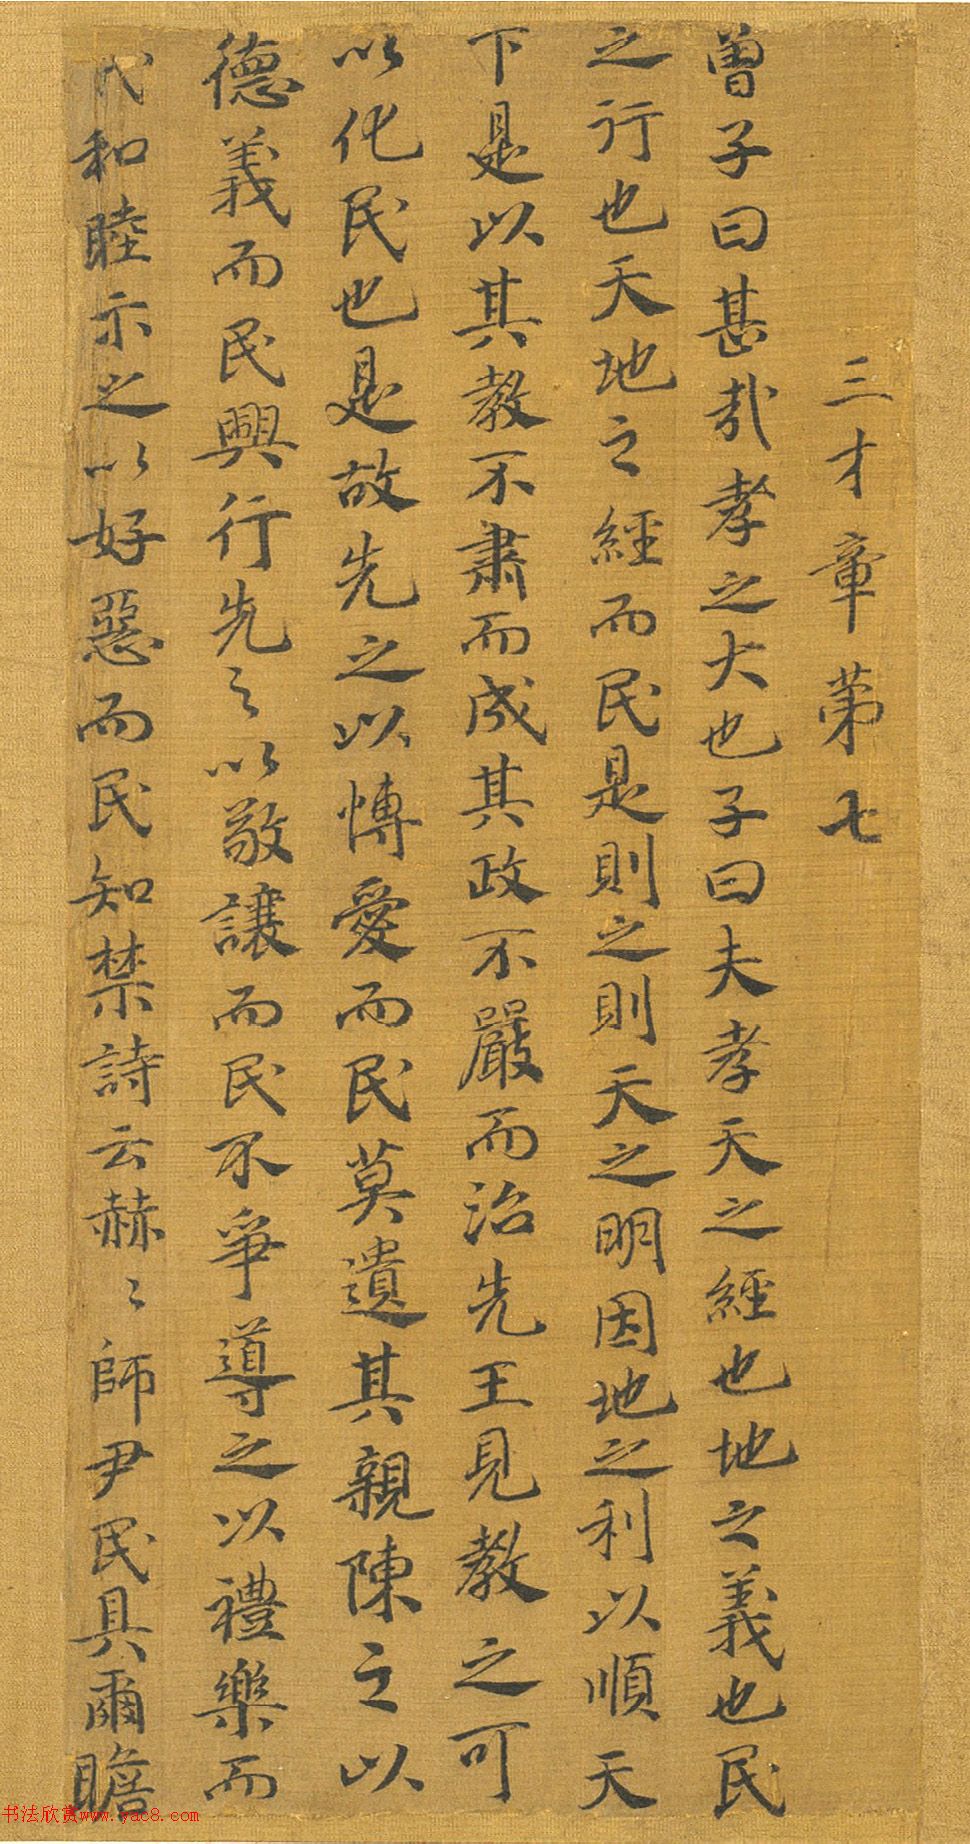 三才章第七
曾子曰甚哉孝之大也子曰夫孝天之經也地之義也民
之行也天地之經而民是則之則天之明因地之利以順天
下是以其教不肅而成其政不嚴而治先王見教之可
以化民也是故先之以慱愛而民莫遺其親陳之以
德義而民興行先之以敬讓而民不爭導之以禮樂而
民和睦示之以好惡而民知禁詩云赫〻師尹民具爾瞻
书法欣赏www.yac8.com